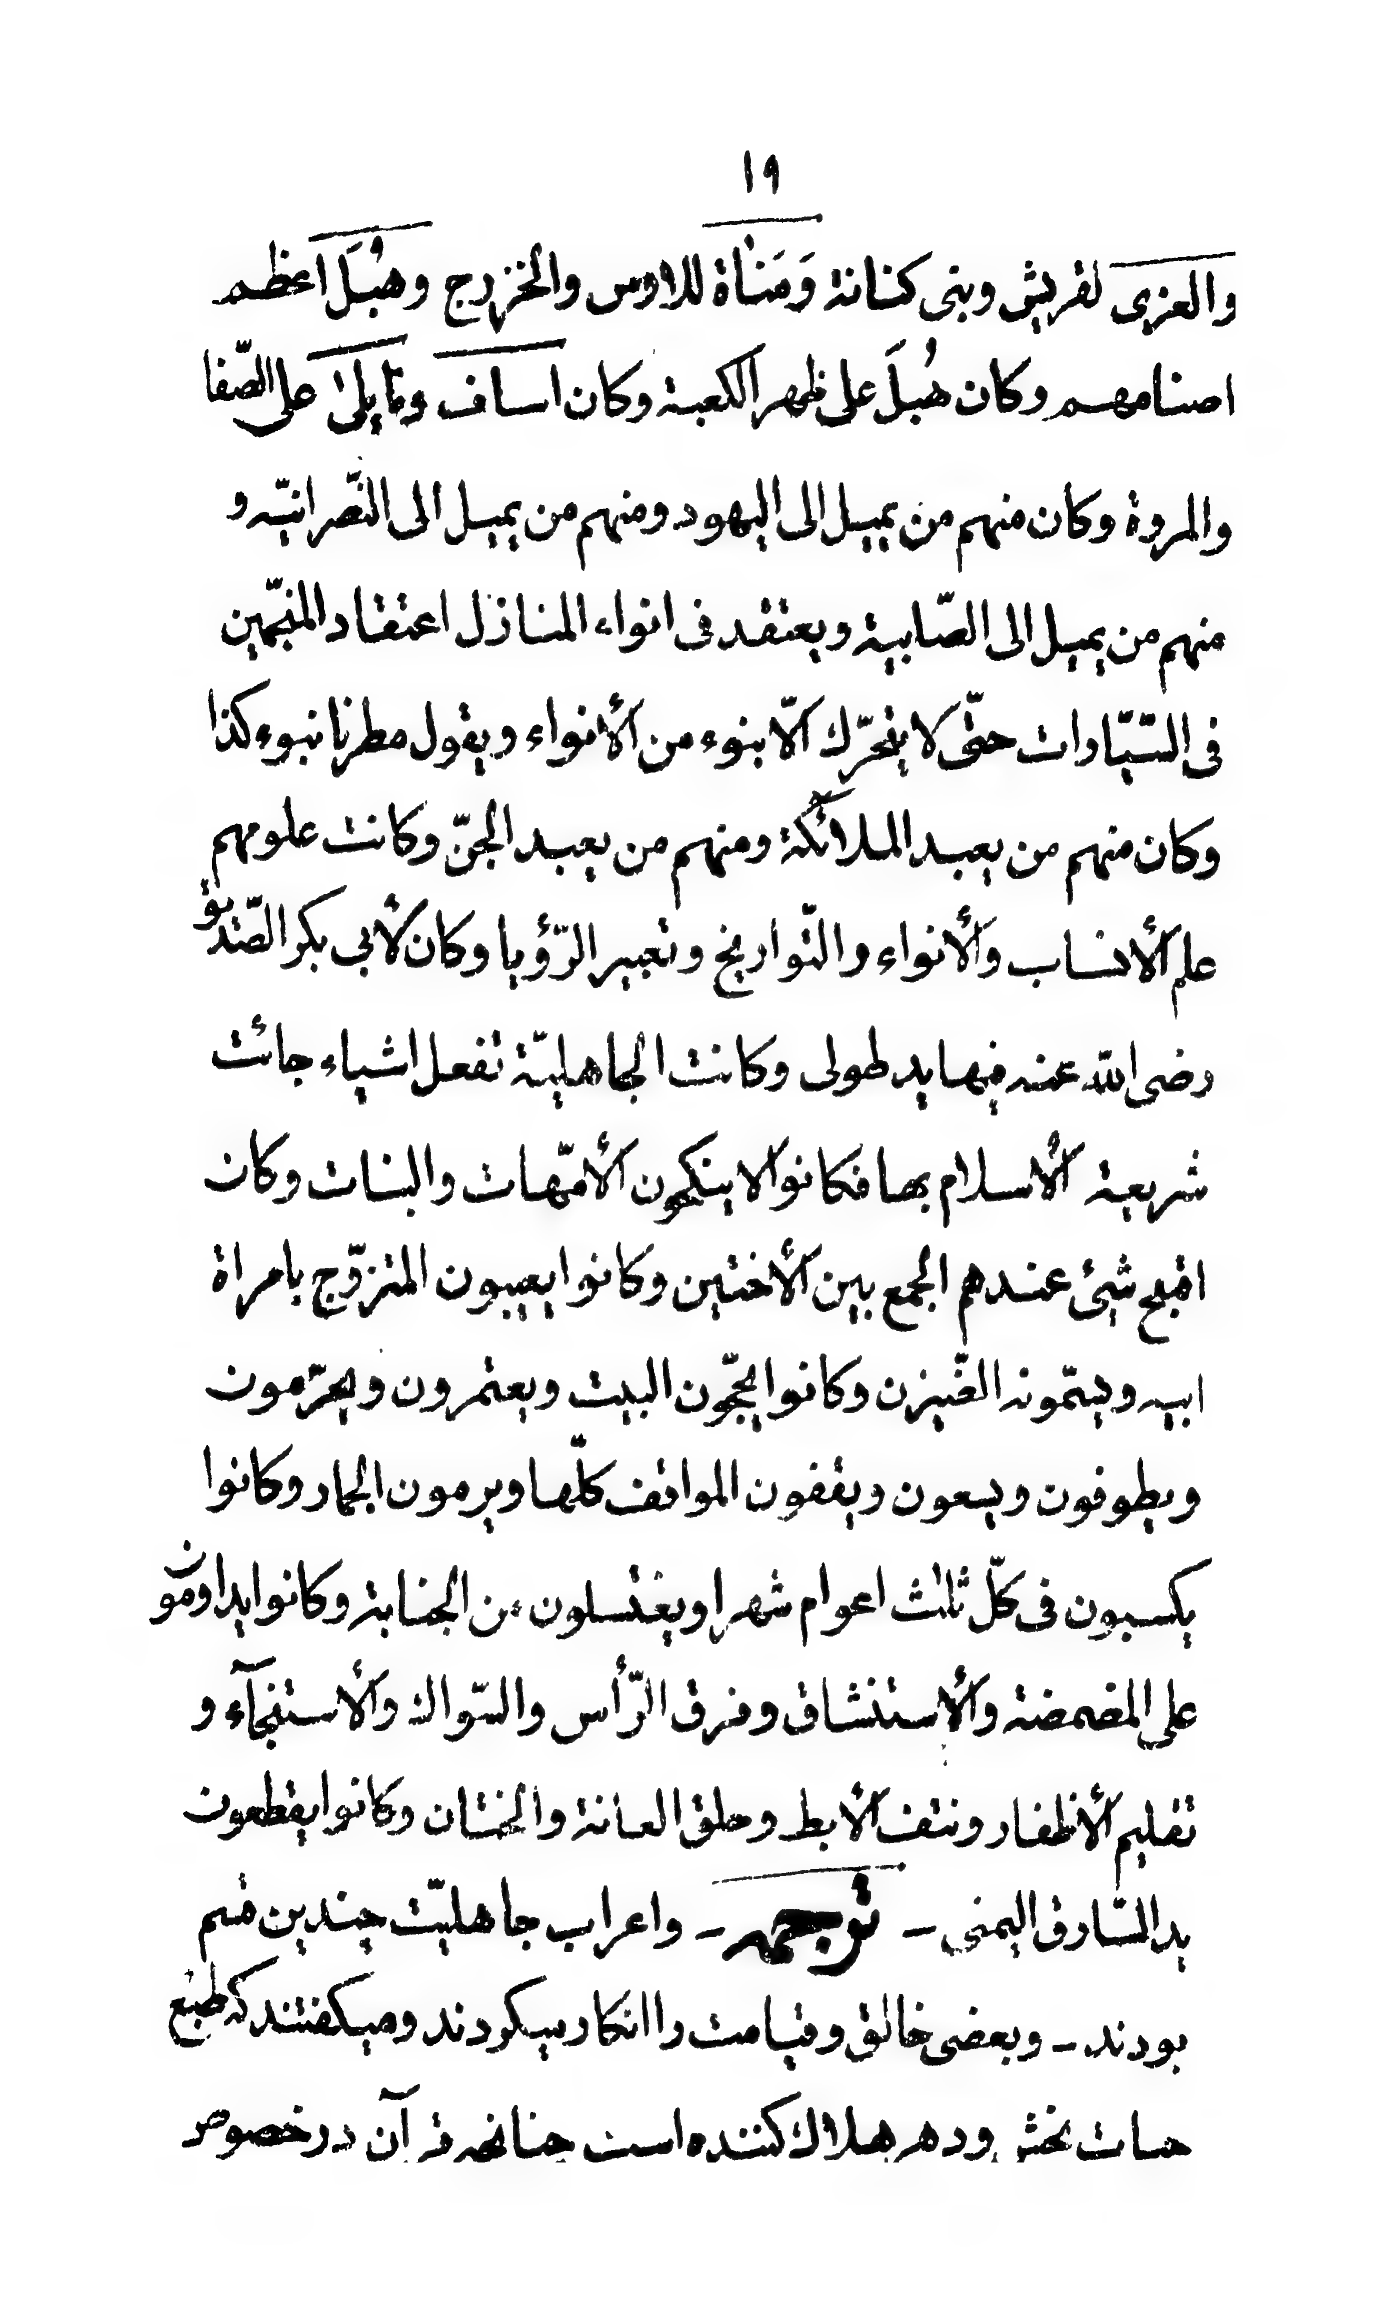 ١٩
والعزى لقريش وبنى كنانة وَمَنٰاة للاوس والخزرج وهُبَل اعظم
اصنامهم وكان هُبَل على ظهر الكعبة وكان اساف ونايلىٰ على الصّفا
والمروة وكان منهم من يميل الى اليهود ومنهم من يميل الى النّصرانيّه و
منهم من يميل الى الصّابية ويعتقد فى انواء المنازل اعتقاد المنجّمين
فى السّيّارات حتّى لا يتحرّك الّا بنوء من الأنواء ويقول مطرنا نبوء كذا
وكان منهم من يعبد الملائكة ومنهم من يعبد الجنّ وكانت علومهم
علم الأنساب والأنواء والتّواريخ وتعبير الرّؤيا وكان لأبى بكر الصّديق
رضى الله عنه فيها يد طولى وكانت الجاهليّة تفعل اشياء جائت
شريعة الأسلام بها فكانوا لا ينكحون الأمّهات والبنات وكان
اقبح شئ عندهم الجمع بين الأختين وكانوا يعيبون المتزوّج بامراة
ابيه ويسمّونه الضّيزن وكانوا يحجّون البيت ويعتمرون ويحرّمون
ويطوفون ويسعون ويقفون المواقف كلّها ويرمون الجمار وكانوا
يكسبون فى كلّ ثلث اعوام شهرا ويغتسلون من الجنابة وكانوا يداومون
على المضمضة والأستنشاق وفرق الرّأس والسّواك والأستنجآء و
تقليم الأظفار ونتف الأبط وحلق العانة والختان وكانوا يقطعون
يد السّارق اليمنى - ترجمه - واعراب جاهليّت چندين قسم
بودند - وبعضى خالق وقيامت را انكار ميكردند وميكفتند كه طبع
حيات بخش ودهر هلاك كننده است چنانچه قرآن در خصوص